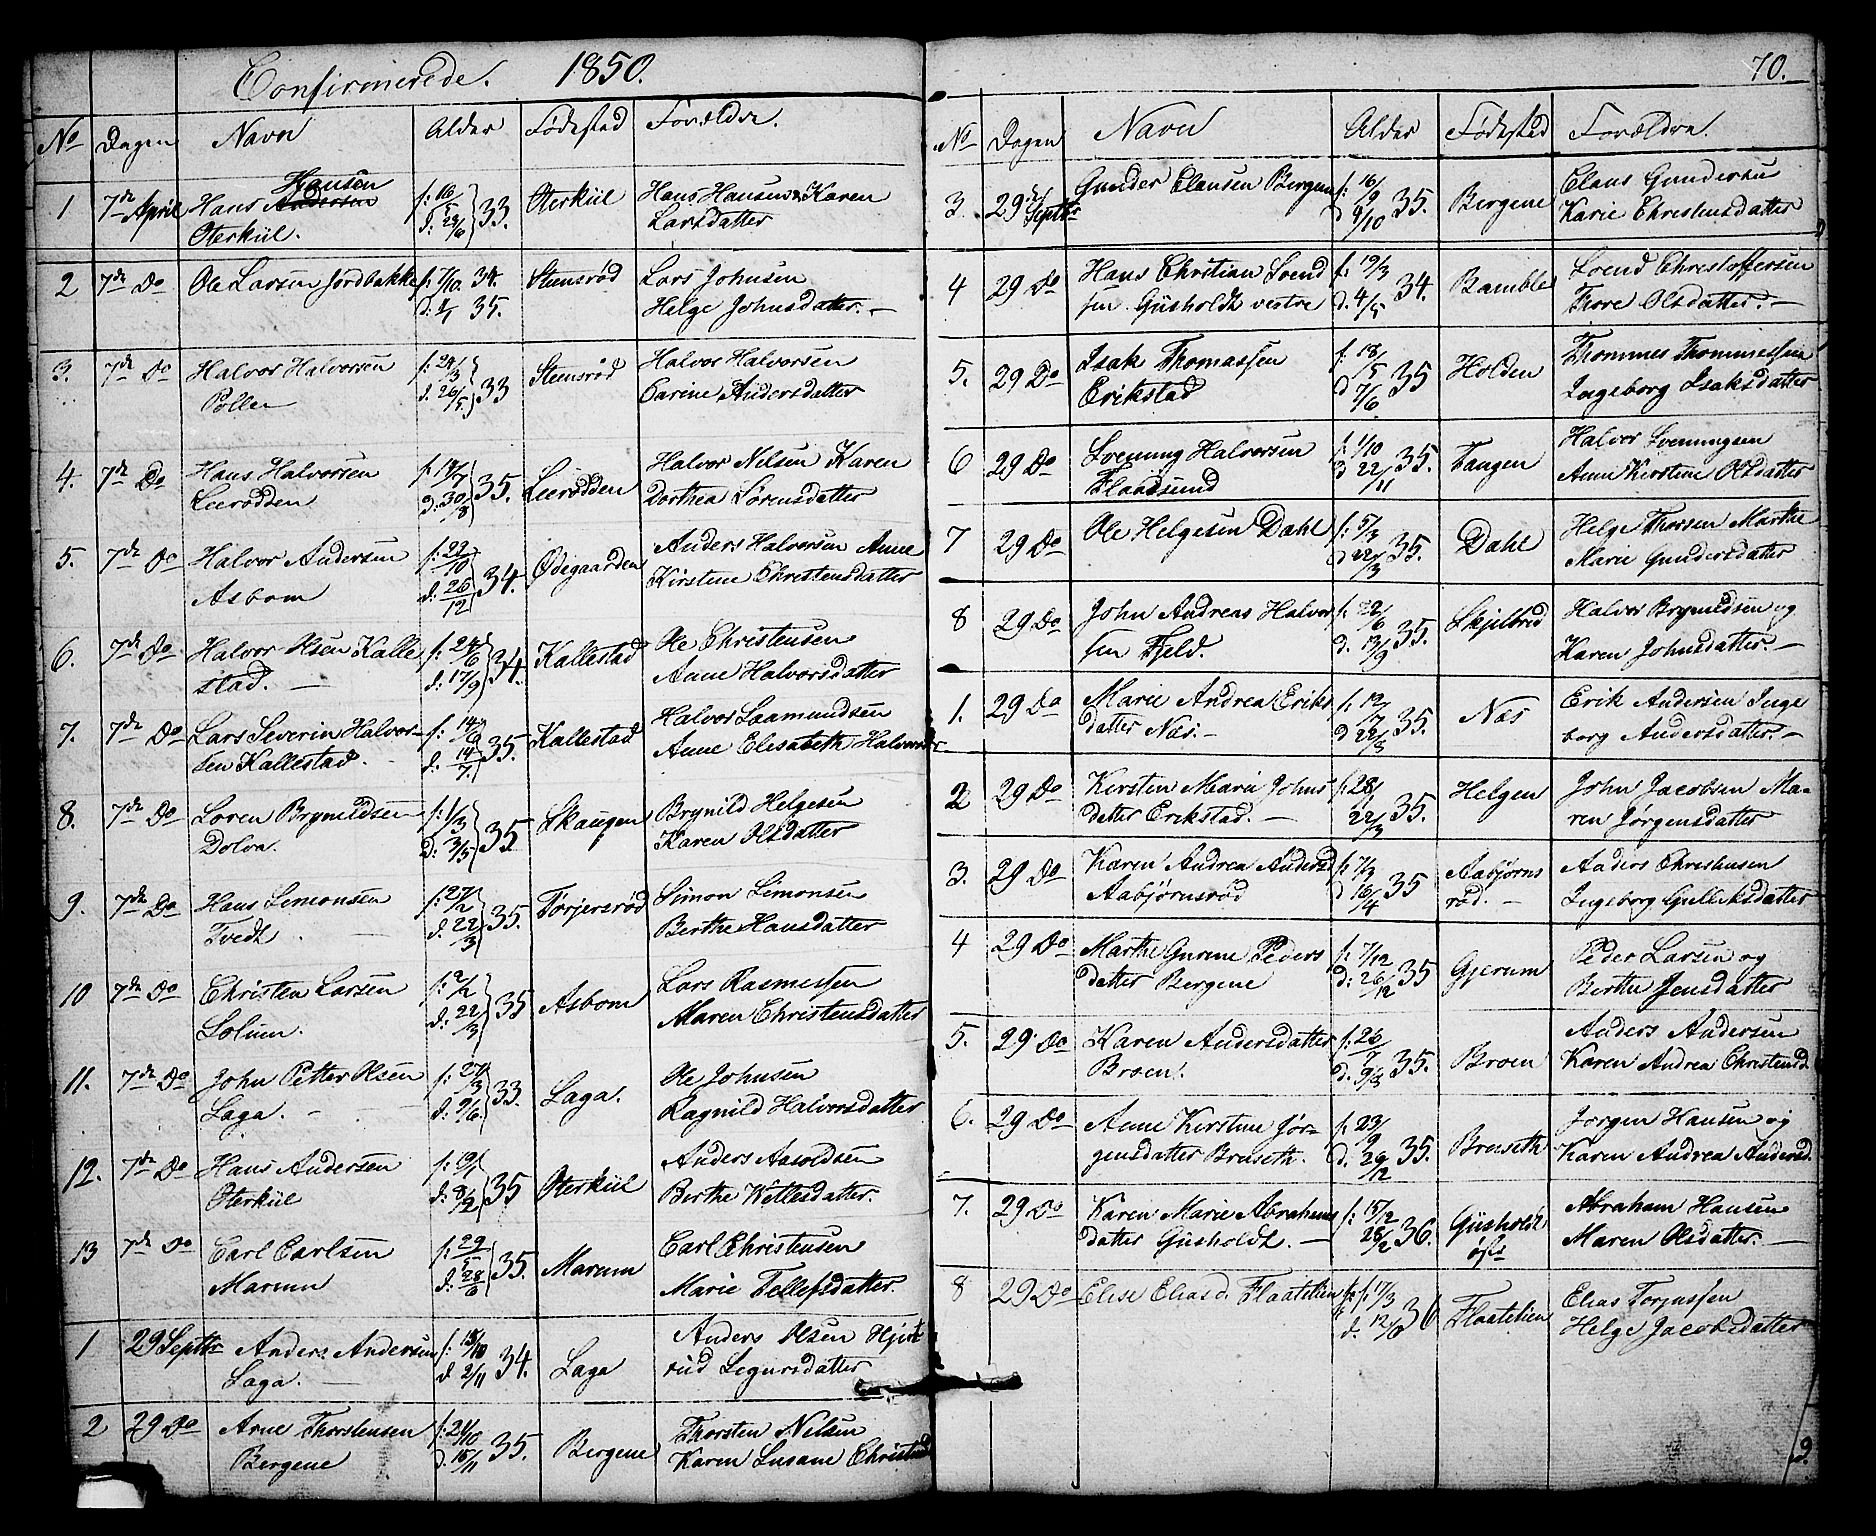 Confirmerede. 1850.
No Dagen Navn Alder Fødested Forældre.
1 7de April Hans Hansen Andersen f: 16/5 33 Oterkiil Hans Hansen & Karen
Oterkiil. d: 23/6 Larsdatter
2 7de Do Ole Larsen Jordbakke f: 7/10. 34. Stensrød Lars Johnsen
d: 1/1 35. Helge Johnsdatter. -
3. 7de Do Halvor Halvorsen f: 24/3 33 Stensrød Halvor Halvorsen
Pollen d. 26/5. Carine Andersdatter
4. 7de Do Hans Halvorsen f. 19/7 35. Leerødden Halvor Nilsen Karen
Leerødden d: 30/8 Dorthea Sørensdatter
5. 7de Do Halvor Andersen f: 22/10 34. Ødegaarden Anders Halvorsen Anne
Asbom d: 26/12 Kirstine Christensdatter
6. 7de Do Halvor Olsen Kalle f: 24/6 34. Kallestad Ole Christensen
stad. - d: 17/9 Anne Halvorsdatter
7. 7de Do Lars Severin Halvor- f: 14/6 35. Kallestad Halvor Laamundsen
sen Kallestad. d: 14/7. Anne Elisabeth Halvorsdr
8. 7de Do Soren Brynildsen f: 1/3 35. Skaugen Brynild Helgesen
Dolva. d: 3/5 Karen Olsdatter
9. 7de Do Hans Simonsen f: 27/2 35. Torjersrød Simon Simonsen
Tvedt. - d. 22/3 Berthe Hansdatter
10 7de Do Christen Larsen f: 2/2 35 Asbom Lars Rasmessen
Solum. d: 22/3 Maren Christensdatter
11. 7de Do John Petter Olsen f: 27/3 33. Laga. Ole Johnsen
Laga. - d: 9/6. Ragnild Halvorsdatter
12. 7de Do Hans Andersen f: 19/1 35 Oterkiil Anders Aasoldsen
Oterkiil d: 8/2 Berthe Kittlesdatter.
13 7de Do Carl Carlsen f: 29/5 35. Marum Carl Christensen
Marum d: 28/6 Marie Tellefsdatter.
1 29 Septbr Anders Andersen f: 18/10 34. Laga Anders Olsen Hjert
Laga. - d. 2/11 rud Segursdatter
2 29 Do Arne Thorstensen f: 21/10 35. Bergene Thorsten Nilsen
Bergene d. 15/11 Karen Susane Christensd
70.
No Dagen Navn Alder Fødested Forældre.
3. 29de Septbr Gunder Clausen Bergene f: 16/9 35. Bergene Claus Gundersen
d 9/10 Karie Christensdatter
4 29 Do Hans Christian Svend f: 19/3 34. Bamble Svend Christoffersen
sen Gusholdt vestre d. 4/5 Thore Olsdatter. -
5. 29 Do Isak Thomassen f: 18/5 35 Holden Thommes Thommessen
Erikstad d 7/6 Ingeborg Isaksdatter
6 29 Do Svenning Halvorsen f: 1/10 35. Tangen Halvor Svenningsen
Flaadsund d 22/11 Anne Kirstine Olsdatter
7 29 Do Ole Helgesen Dahl f: 5/3 35. Dahl Helge Thorsen Marthe
d 22/3 Marie Gundersdatter
8 29 Do John Andreas Halvor f. 22/6 35. Skjelbred Halvor Brynildsen og
sen Fjeld. d. 13/9 Karen Johnsdatter. -
1. 29 Do Marie Andrea Eriks f. 12/7 35. Næs Erik Andersen Inge
datter Næs. - d 22/3 borg Andersdatter. -
2 29 Do Kirsten Marie Johns f. 28/1 35. Helgen John Jacobsen Ma-
datter Erikstad. - 22/3 ren Jørgensdatter
3. 29 Do Karen Andrea Andersd f: 7/3 35 Aabjørns Anders Christensen
Aabjørnsrød d 16/4 rød. - Ingeborg Gulleksdatter
4 29 Do Marthe Gurine Peders f. 7/12 35 Gjerum Peder Larsen og
datter Bergene d: 26/12 Berthe Jensdatter
5. 29 Do Karen Andersdatter f. 26/7 35. Broen Anders Andersen
Broen. d. 9/3 Karen Andrea Christensd.
6. 29 Do Anne Kirstine Jør- f. 23/9 35. Breseth Jorgen Hansen og
gensdatter Breseth. d. 26/12 Karen Andrea Andersd.
7. 29 Do Karen Marie Abrahams f: 15/2 36. Gusholdt Abraham Hansen
datter Gusholdt. - 26/2 øst Maren Olsdatter. -
8 29 Do Elise Eliasd. Flaatelien f. 17/3 36 Flaatelien Elias Torjussen
d. 12/6 Helge Jacobsdatter
9.